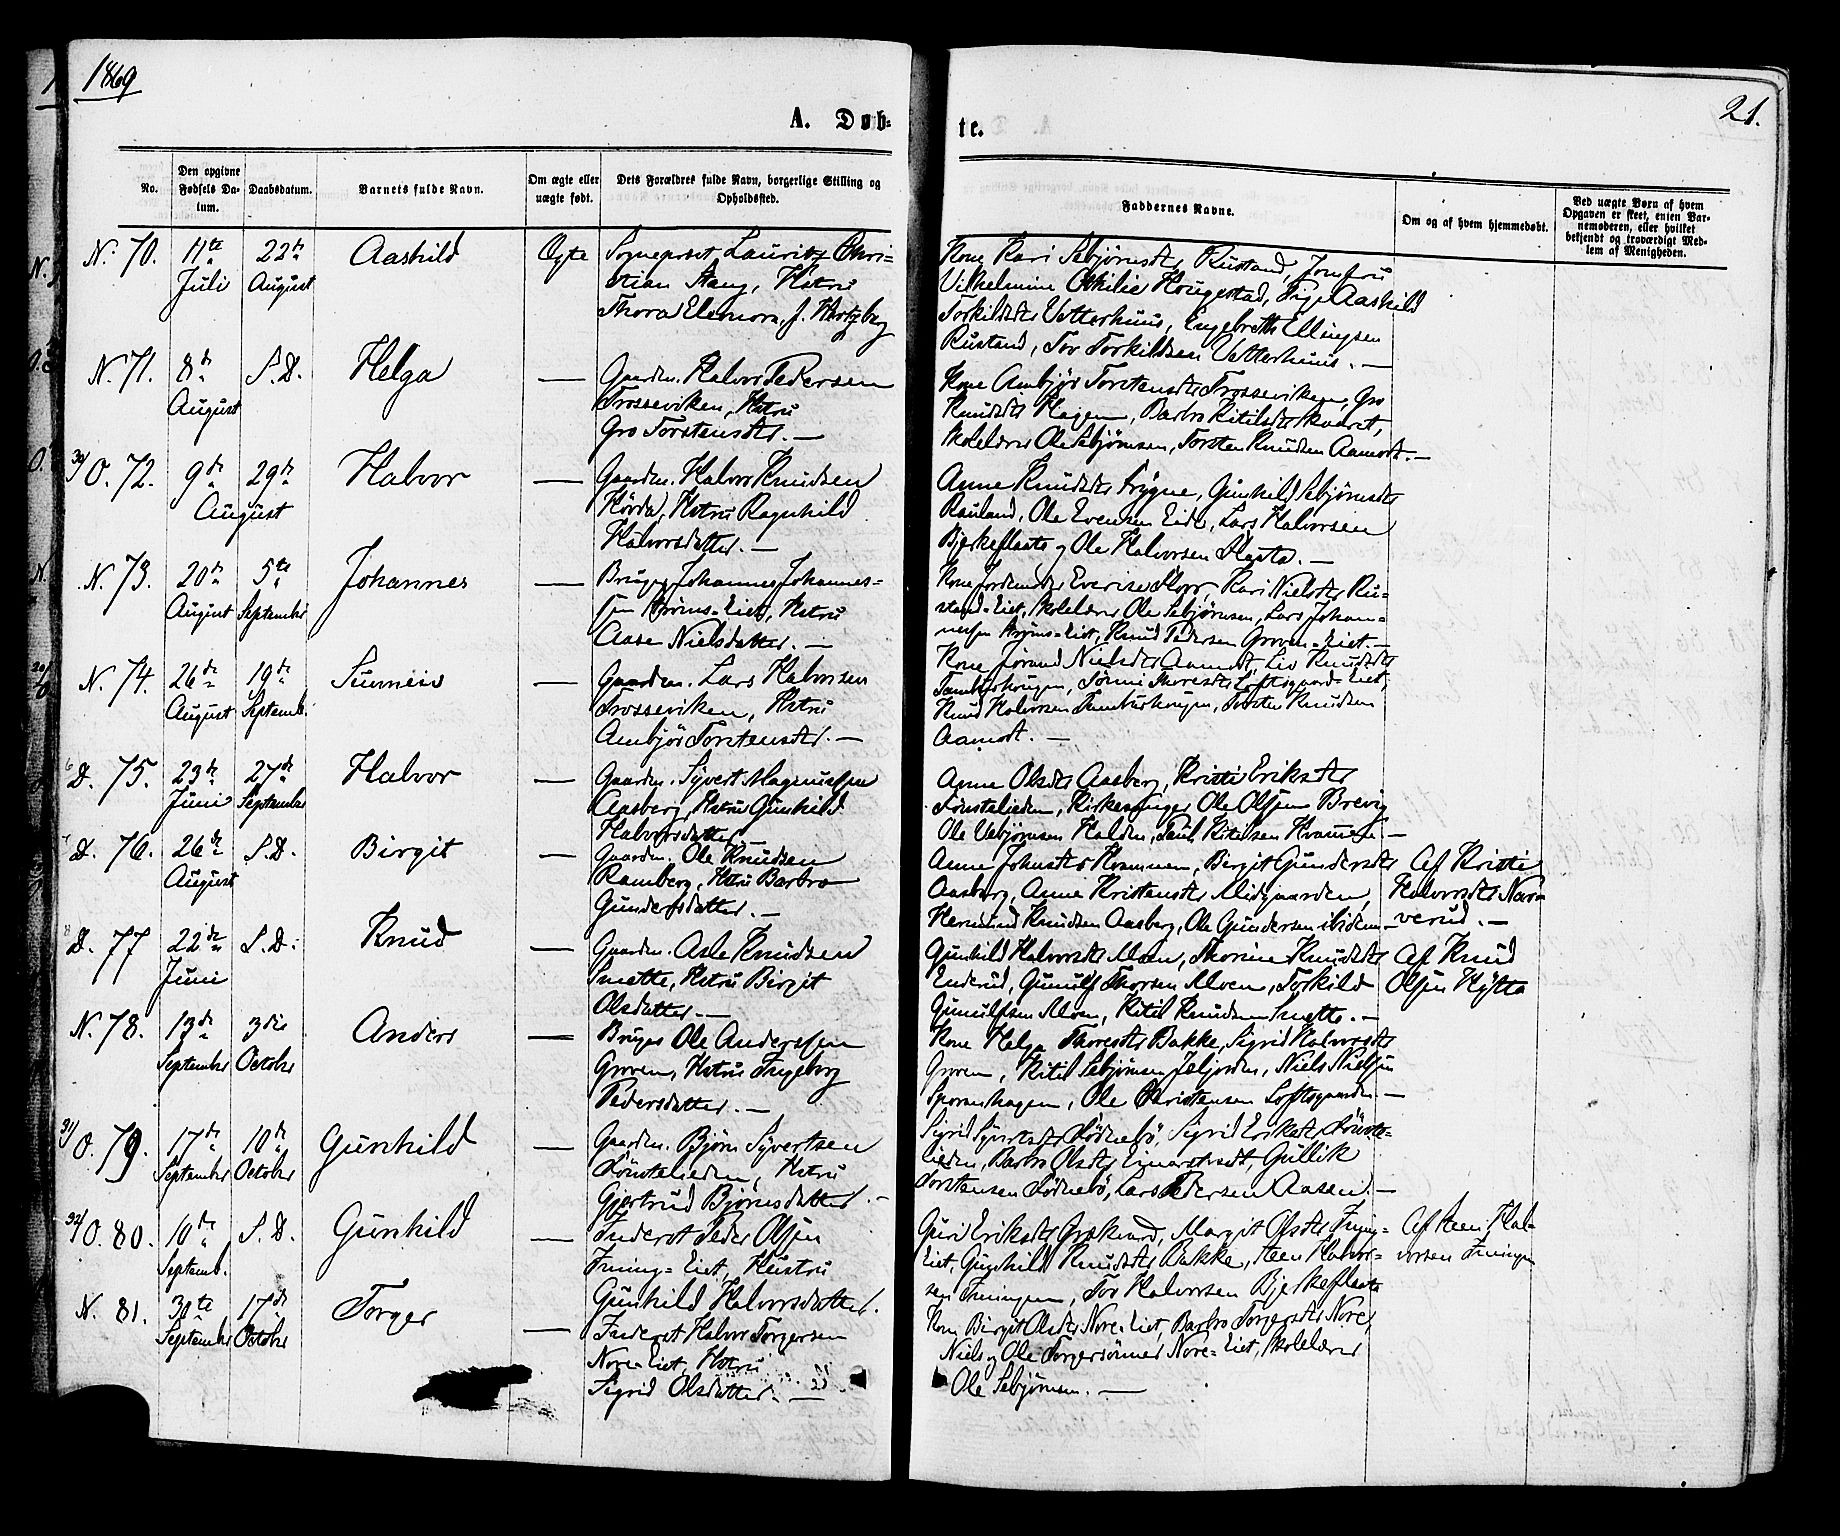 1869
21.
A. Døb-
te.
No.
Den opgivne
Fødsels Da-
tum.
Daabsdatum.
Barnets fulde Navn.
Om ægte eller
uægte født.
Dets Forældres fulde Navn, borgerlige Stilling og
Opholdssted.
Faddernes Navne.
Om og af hvem hjemmedøbt.
Ved uægte Børn af hvem
Opgaven er skeet, enten Bar-
nemoderen, eller hvilket
bekjendt og troværdigt Med-
lem af Menigheden.
N. 70. 11te 22de Aashild Ægte Sogneprest Lauritz Chri-
Juli August stian Stang, Hstru
Thora Eleonora, f.
Kone Kari Sebjørnsdtr Rustand, Jomfru
Vilhelmine Othilie Hougestad, Pige Aashild
Torkildsdtr Vetterhuus, Engebreth Ellingsen
Rustand, Tov Torkildsen Vetterhuus. —
N. 71. 8de S.D. Helga — Gaardm. Halvor Pedersen
August Trosseviken, Hstru
Gro Torstensdtr. —
Kone Ambjør Torstensdtr Trosseviken, Gro
Knudsdtr Hagen, Barbro Kittilsdtr
Skolelærer Ole Sebjørnsen, Torsten Knudsen Aamodt. —
30/ O. 72. 9de 29de Halvor — Gaardm. Halvor Knudsen
August Hstru Ragnhild
Halvorsdatter. —
Anne Knudsdtr Frygne, Gunhild Sebjørnsdtr
Rauland, Ole Evensen Eide, Lars Halvorsen
Bjerkeflaate og Ole Halvorsen —
N. 73. 20de 5te Johannes — Bruger Johannes Johannes-
August September sen Eiet, Hstru
Aase Nielsdatter. —
Kone Kari Nielsdtr Ru-
stand-Eiet, Skolelærer Ole Sebjørnsen, Lars Johan-
nesen Eiet, Knud Pedersen Groven-Eiet. —
N. 74. 26de 19de Sunneiv — Gaardm. Lars Halvorsen
August Septemb. Trosseviken, Hstru
Ambjør Torstensdtr. —
Kone Jørand Nielsdtr Aamodt, Liv Knudsdtr
Tamburhougen, Thoresdtr Loftsgaard-Eiet,
Knud Halvorsen Tamburhougen, Torsten Knudsen
Aamodt. —
D. 75. 23de 27de Halvor — Gaardm. Syvert Magnussen
Juni September Aasberg, Hstru Gunhild
Halvorsdatter —
Anne Olsdtr Aasberg, Kristi Eriksdtr
Lønstelieden, Kirkesanger Ole Olsen Brevig
Ole Halden, Paul Kittilsen Kravnen. —
D. 76. 26de S.D. Birgit — Gaardm. Ole Knudsen
August Ramberg, Hstru Barbro
Gundersdatter. —
Anne Johnsdtr Birgit Gundersdtr
Aasberg, Anne Kristensdtr Midgaarden,
Hermund Knudsen Aasberg, Ole Gundersen ibidem —
Af Kristi
Halvorsdtr Nør-
verud. —
D. 77 22de S.D. Knud — Gaardm. Asle Knudsen
Juni Smette, Hstru Birgit
Olsdatter. —
Gunhild Halvorsdtr Moen, Thorine Knudsdtr
Enderud, Gunulf Thorsen Moen, Torkild
Gunulfsen Moen, Kittil Knudsen Smette. —
Af Knud
Olsen Hytta
N. 78. 13de 3die Anders — Bruger Ole Anderssen
September October Groven, Hstru Ingeborg
Pedersdatter. —
Kone Helga Thoresdtr Bakke, Sigrid Halvorsdtr
Groven, Kittil Sebjørnsen Jeljorden, Niels Nielsen
Sporanhagen, Ole Christensen Loftsgaarden —
31/ O. 79. 17de 10de Gunhild — Gaardm. Bjørn Syvertsen
September October Lønstelieden, Hstru
Gjertrud Bjørnsdatter. —
Sigrid Syvertsdtr Lødnebø, Sigrid Eriksdtr Lønste-
lieden, Barbro Olsdtr Gullik
Torstensen Lødnebø, Lars Pedersen Aasen. —
32/ O. 80. 10de S.D. Gunhild — Inderst Peder Olsen
Septemb. Frning-Eiet, Hustru
Gunhild Halvorsdatter.
Guri Eriksdtr Margit Olsdtr
Eiet, Gunhild Knudsdtr Bakke, Steen Halvor-
sen Tov Halvorsen Bjerkeflaate
Af Steen Hal-
vorsen
N. 81. 30te 17de Torger — Inderst Halvor Torgersen
September October Nore-Eiet, Hstru
Sigrid Olsdatter. —
Kone Birgit Olsdtr Nore-Eiet, Barbro Torgersdtr Nore,
Niels og Ole Torgersønner Nore-Eiet, Skolelærer
Ole Sebjørnsen. —